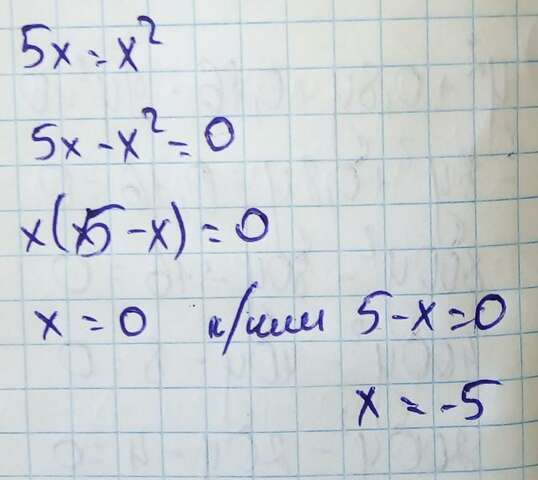 5x = x²
5x - x² = 0
x(5 - x) = 0
x = 0 и/или 5 - x = 0
x = -5